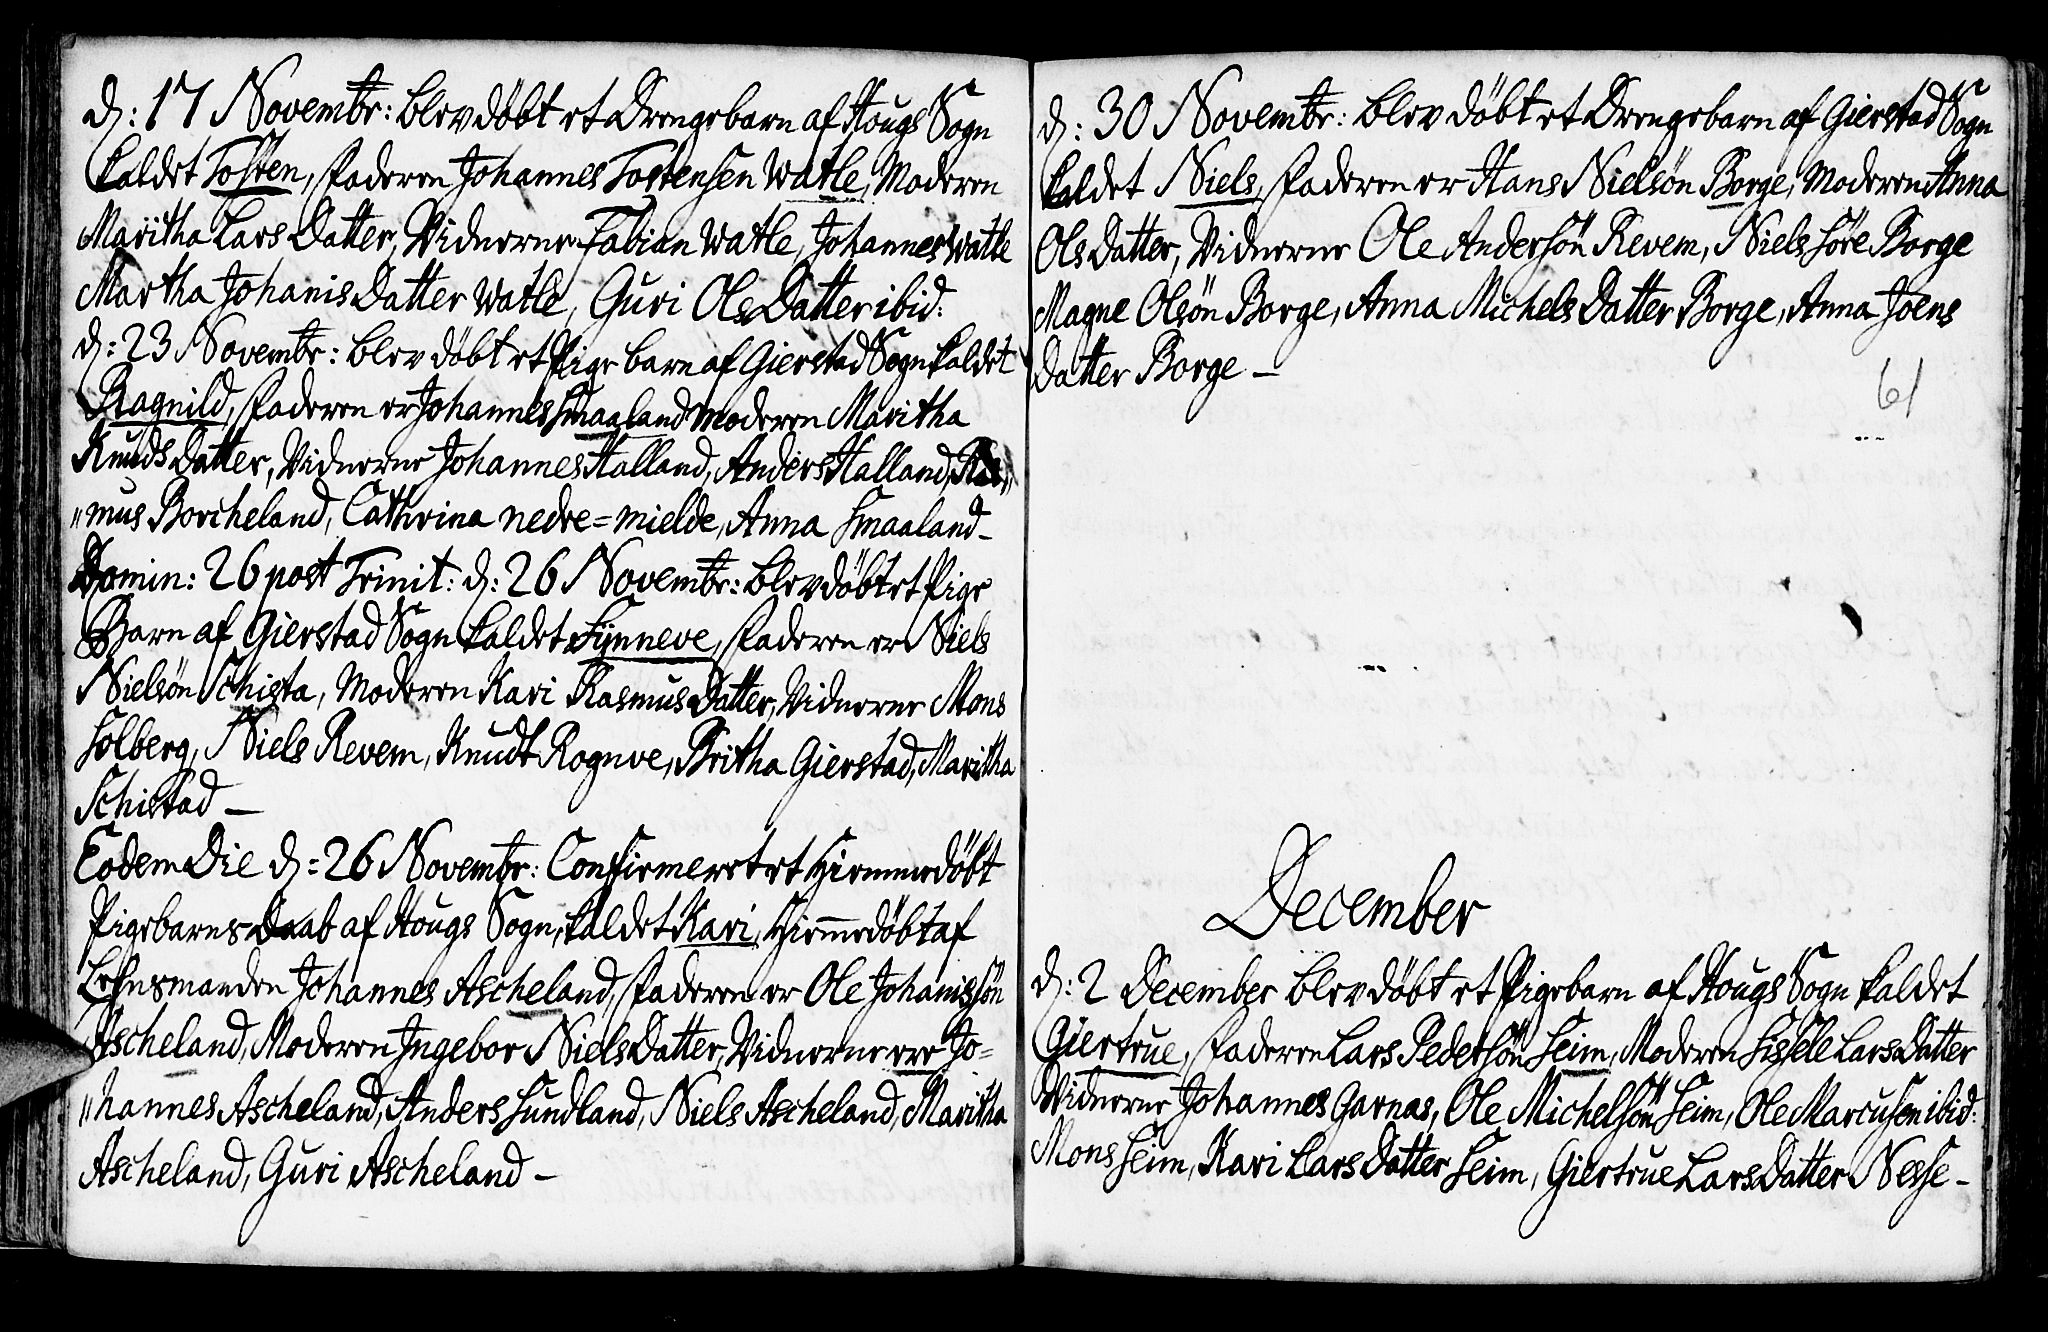 d: 17 Novembr: blev döbt et Drengebarn af Hougs Sogn
kaldet Tosten, Faderen Johannes Tostensen Watle, Moderen
Maritha Lars Datter, Vidnerne Fabian Watle, Johannes Watle
Martha Johanis Datter Watle, Guri Ols Datter ibid:
d: 23 Novembr: blev döbt et Pige barn af Gierstad Sogn kaldet
Ragnild, Faderen er Johannes Smaaland Moderen Maritha
Knuds Datter, Vidnerne Johannes Halland, Anders Halland, Ras„
„mus Borcheland, Cathrina nedre=mielde, Anna Smaaland –
Domin: 26 post Trinit: d: 26 Novembr: blev döbt et Pige
Barn af Gierstad Sogn kaldet Synneve, Faderen er Niels
Nielsön Schista, Moderen Kari Rasmus Datter, Vidnerne Mons
Solberg, Niels Revem, Knudt Rognve, Britha Gierstad, Maritha
Schistad –
Eodem Die d: 26 Novembr: Confirmeret et Hiemmedöbt
Pigebarns Daab af Hougs Sogn, kaldet Kari, Hiemedöbt af
Lehnsmanden Johannes Ascheland, Faderen er Ole Johanissön
Ascheland, Moderen Ingebor Niels Datter, Vidnerne ere Jo=
„hannes Ascheland, Anders Sundland, Niels Ascheland, Maritha
Ascheland, Guri Ascheland –
d: 30 Novembr: blev döbt et Drengebarn af Gierstad Sogn
kaldet Niels, Faderen er Hans Nielsön Borge, Moderen Anna
Ols Datter, Vidnerne Ole Andersön Revem, Niels Söre Borge
Magne Olsön Borge, Anna Michels Datter Borge, Anna Joens
Datter Borge –
61
December
d: 2 December blev döbt et Pigebarn af Hougs Sogn kaldet
Giertrue, Faderen Lars Pedersön Seim, Moderen Sissele Lars Datter
Vidnerne Johannes Garnas, Ole Michelsön Seim, Ole Marcusen ibid:
Mons Seim, Kari Lars Datter Seim, Giertrue Lars Datter Nesse –